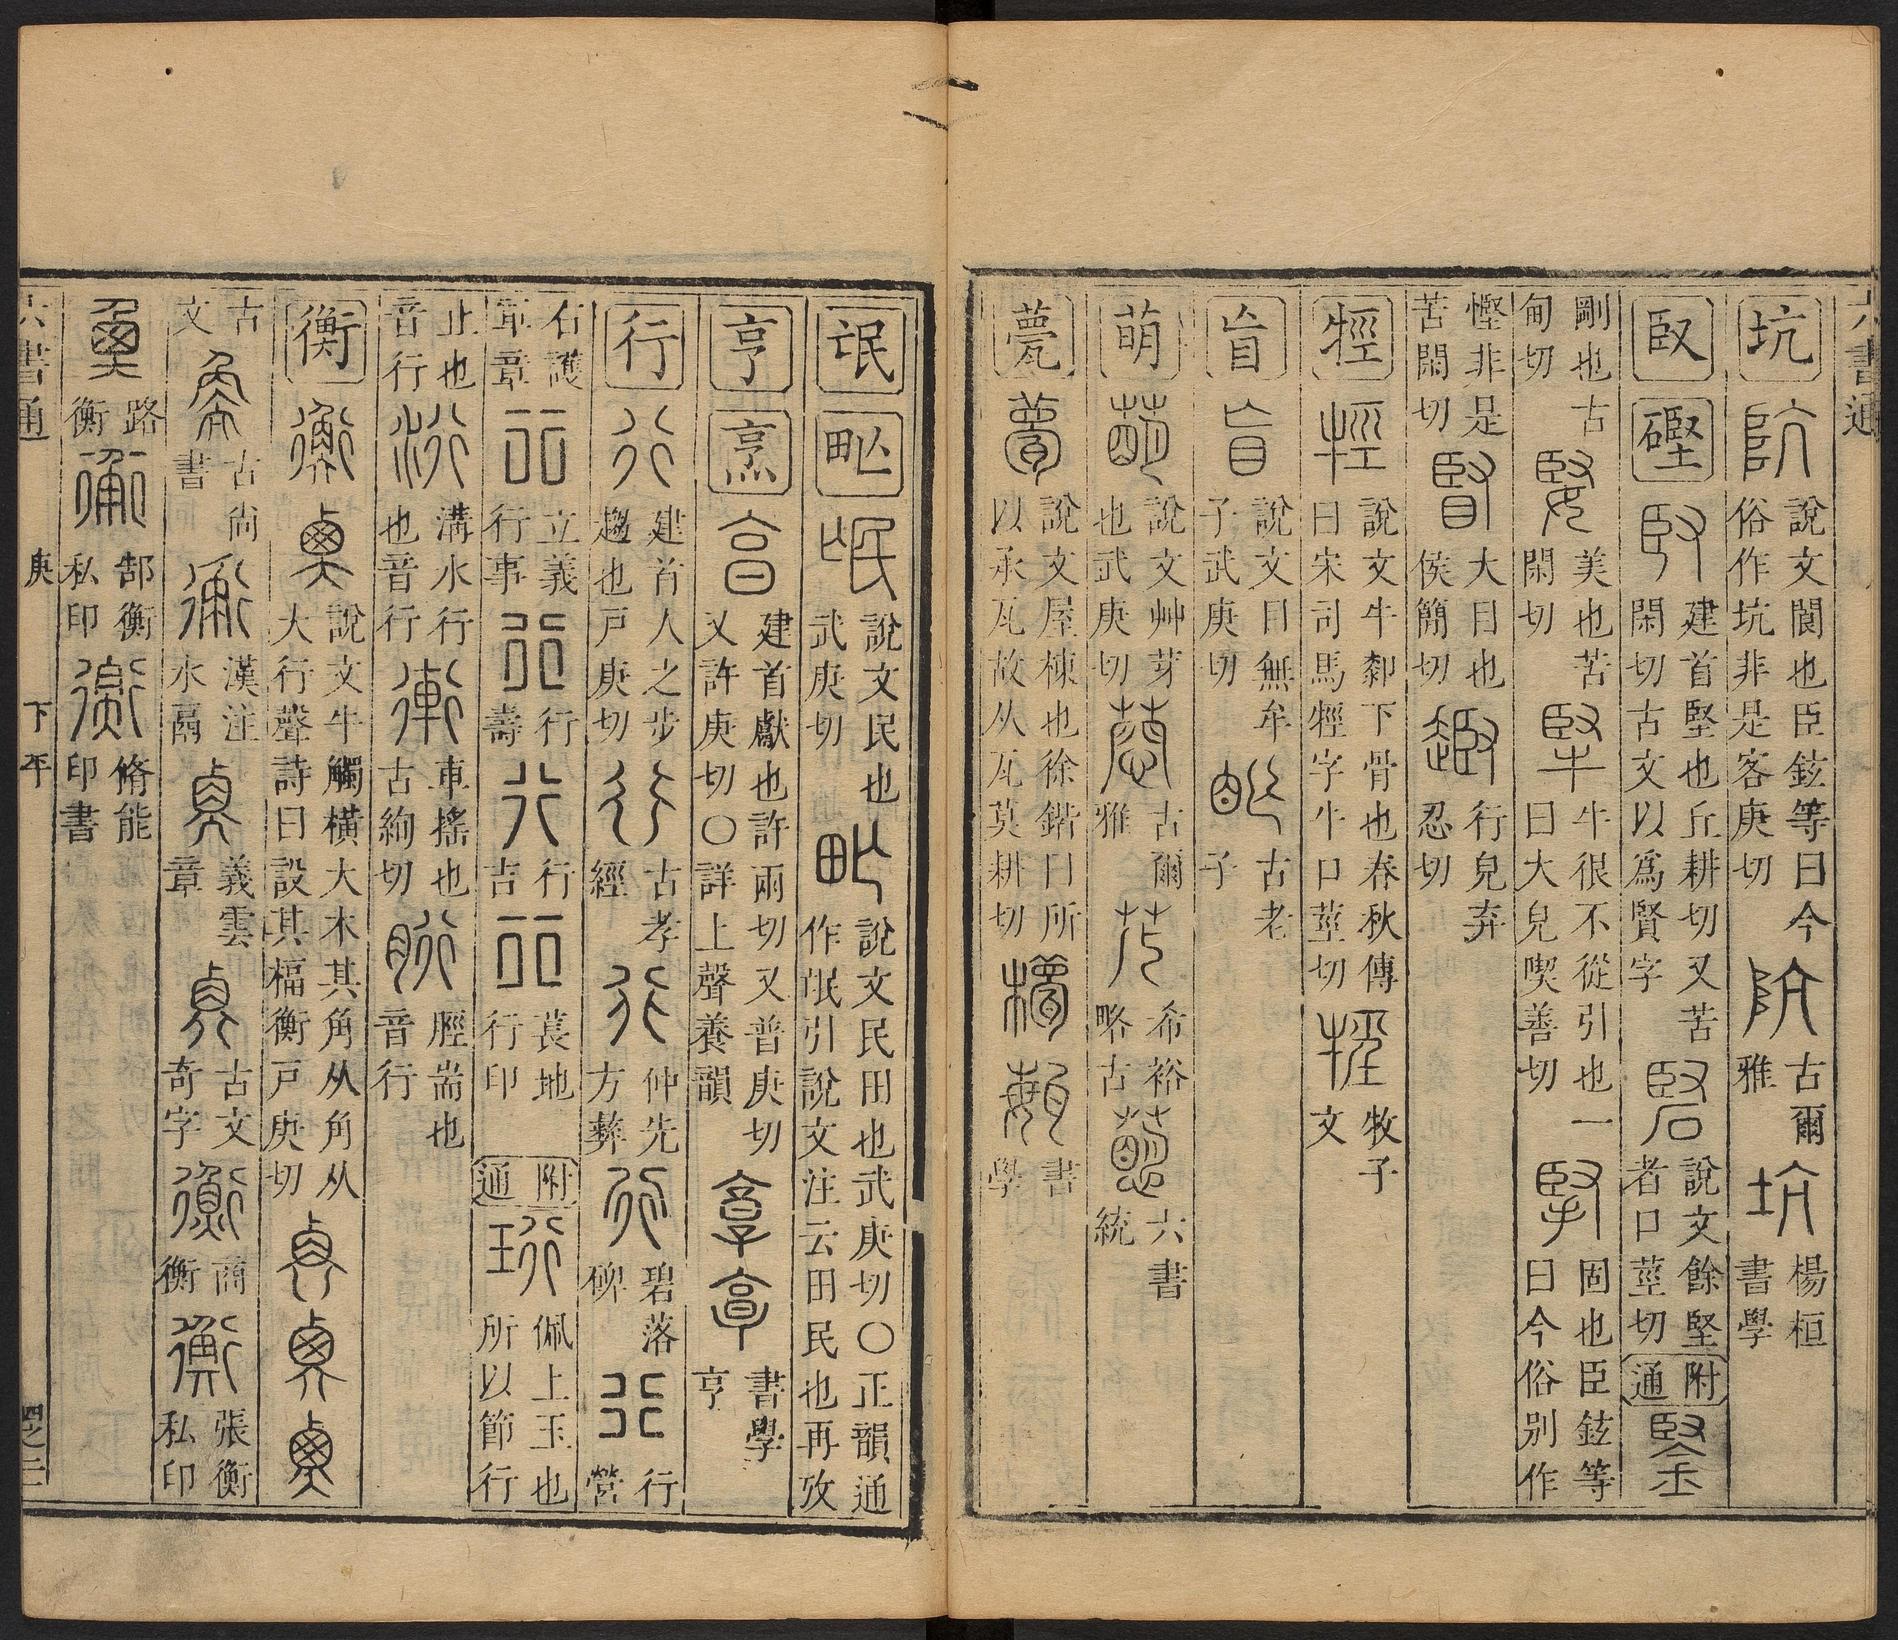 六書通
坑 說文閬也臣鉉等曰今俗作坑非是客庚切 古爾雅 楊桓書學
臤 硻 建首堅也丘耕切又苦閑切古文以為賢字 說文餘堅者口莖切 附通
剛也古甸切 美也苦閑切 牛很不從引也一曰大皃喫善切 固也臣鉉等曰今俗別作
慳非是苦閑切 大目也侯簡切 行皃弃忍切
牼 說文牛𠫵下骨也春秋傳曰宋司馬牼字牛口莖切 牧子文
盲 說文目無牟子武庚切 古老子
萌 說文艸芽也武庚切 古爾雅 希裕略古 六書統
甍 說文屋棟也徐鍇曰所以承瓦故从瓦莫耕切 書學
氓 甿 說文民也武庚切 說文民田也武庚切〇正韻通作氓引說文注云田民也再攷
亨 烹 建首獻也許兩切又普庚切又許庚切〇詳上聲養韻 書學亨
行 建首人之步趨也戶庚切 古孝經 仲先方彝 碧落碑 行營
右護軍章 立義行事 行壽 行吉 萇地行印 附通 佩上玉也所以節行
止也音行 溝水行也音行 車搖也古絢切 脛耑也音行
衡 說文牛觸橫大木其角从角从大行聲詩曰設其楅衡戶庚切
古文 古尚書 漢注水鬲 義雲章 古文奇字 商衡 張衡私印
路衡 郜衡私印 脩能印書
六書通 庚 下平 四之二